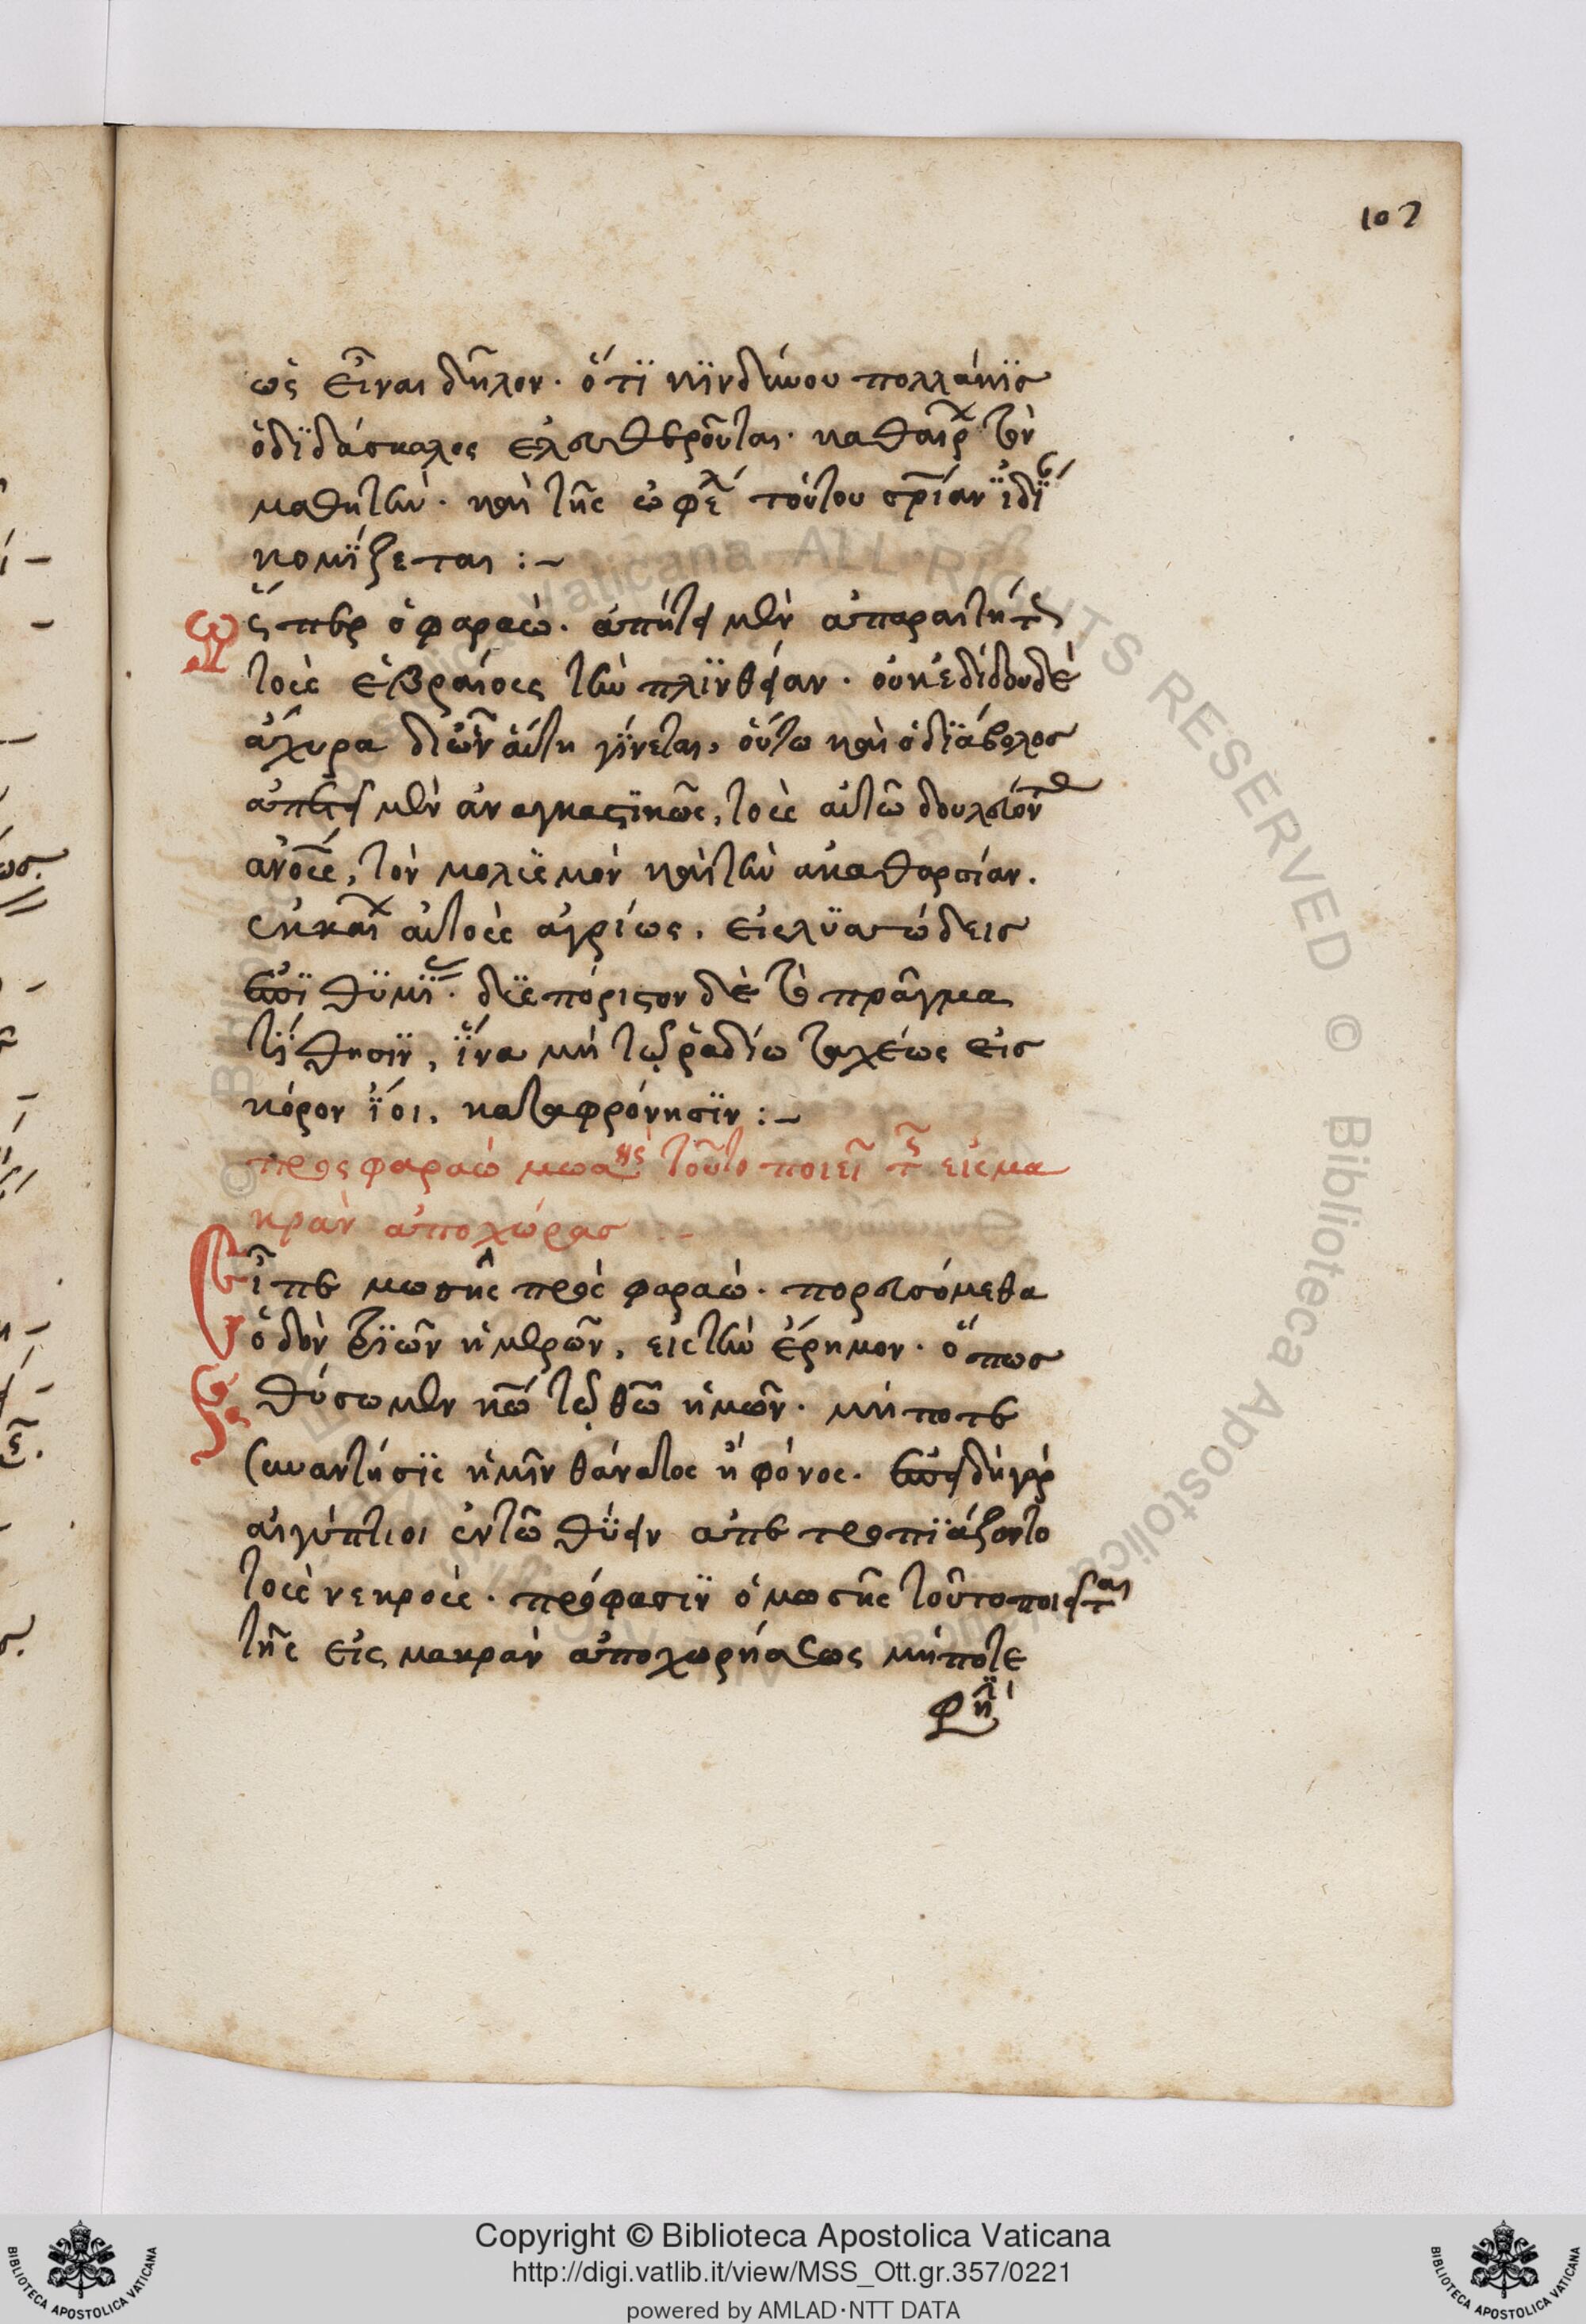 107
ὡς εἶναι δῆλον· ὅτι κινδύνου πολλάκις
ὁ διδάσκαλος ἐλευθεροῦται· καθαιρ τῶν
μαθητῶν· καὶ τῆς ὠφε τούτου σρίαν ἰδί
κομίζεται :~
Ὥσπερ ὁ φαραώ· ἀπήτει μὲν ἀπαραιτήτως
τοὺς ἑβραίους τὴν πλινθείαν· οὐκ ἐδίδου δὲ
ἄχυρα δι' ὧν αὕτη γίνεται, οὕτω καὶ ὁ διάβολος
ἀπαιτεῖ μὲν ἀναγκαστικῶς, τοὺς αὐτῶ δουλεύοντας
ἀνους, τὸν μολυσμὸν καὶ τὴν ἀκαθαρσίαν.
αὐτοὺς ἀγρίως, εἰς λυσσώδεις
ἐπιθυμί· δυσπόριστον δὲ τὸ πρᾶγμα
τίθησιν, ἵνα μὴ τῷ ῥαδίω ταχέως εἰς
κόρον ἴοι, καταφρόνησιν :~
πρὸς φαραὼ μωσῆς τοῦτο ποιεῖ τῆς εἰς μα
κρὰν ἀποχώρας
Εἶπε μωσῆς πρὸς φαραώ· πορευσόμεθα
ὁδὸν τριῶν ἡμερῶν, εἰς τὴν ἔρημον· ὅπως
θύσωμεν κῶ τῷ θῶ ἡμῶν· μήποτε
συναντήσῃ ἡμῖν θάνατος ἢ φόνος. ἐπειδὴ γὰρ
αἰγύπτιοι ἐν τῶ θύειν
τοὺς νεκρούς· πρόφασιν ὁ μωσῆς τοῦτο ποιεῖται
τῆς εἰς μακρὰν ἀποχωρήσεως μήποτε